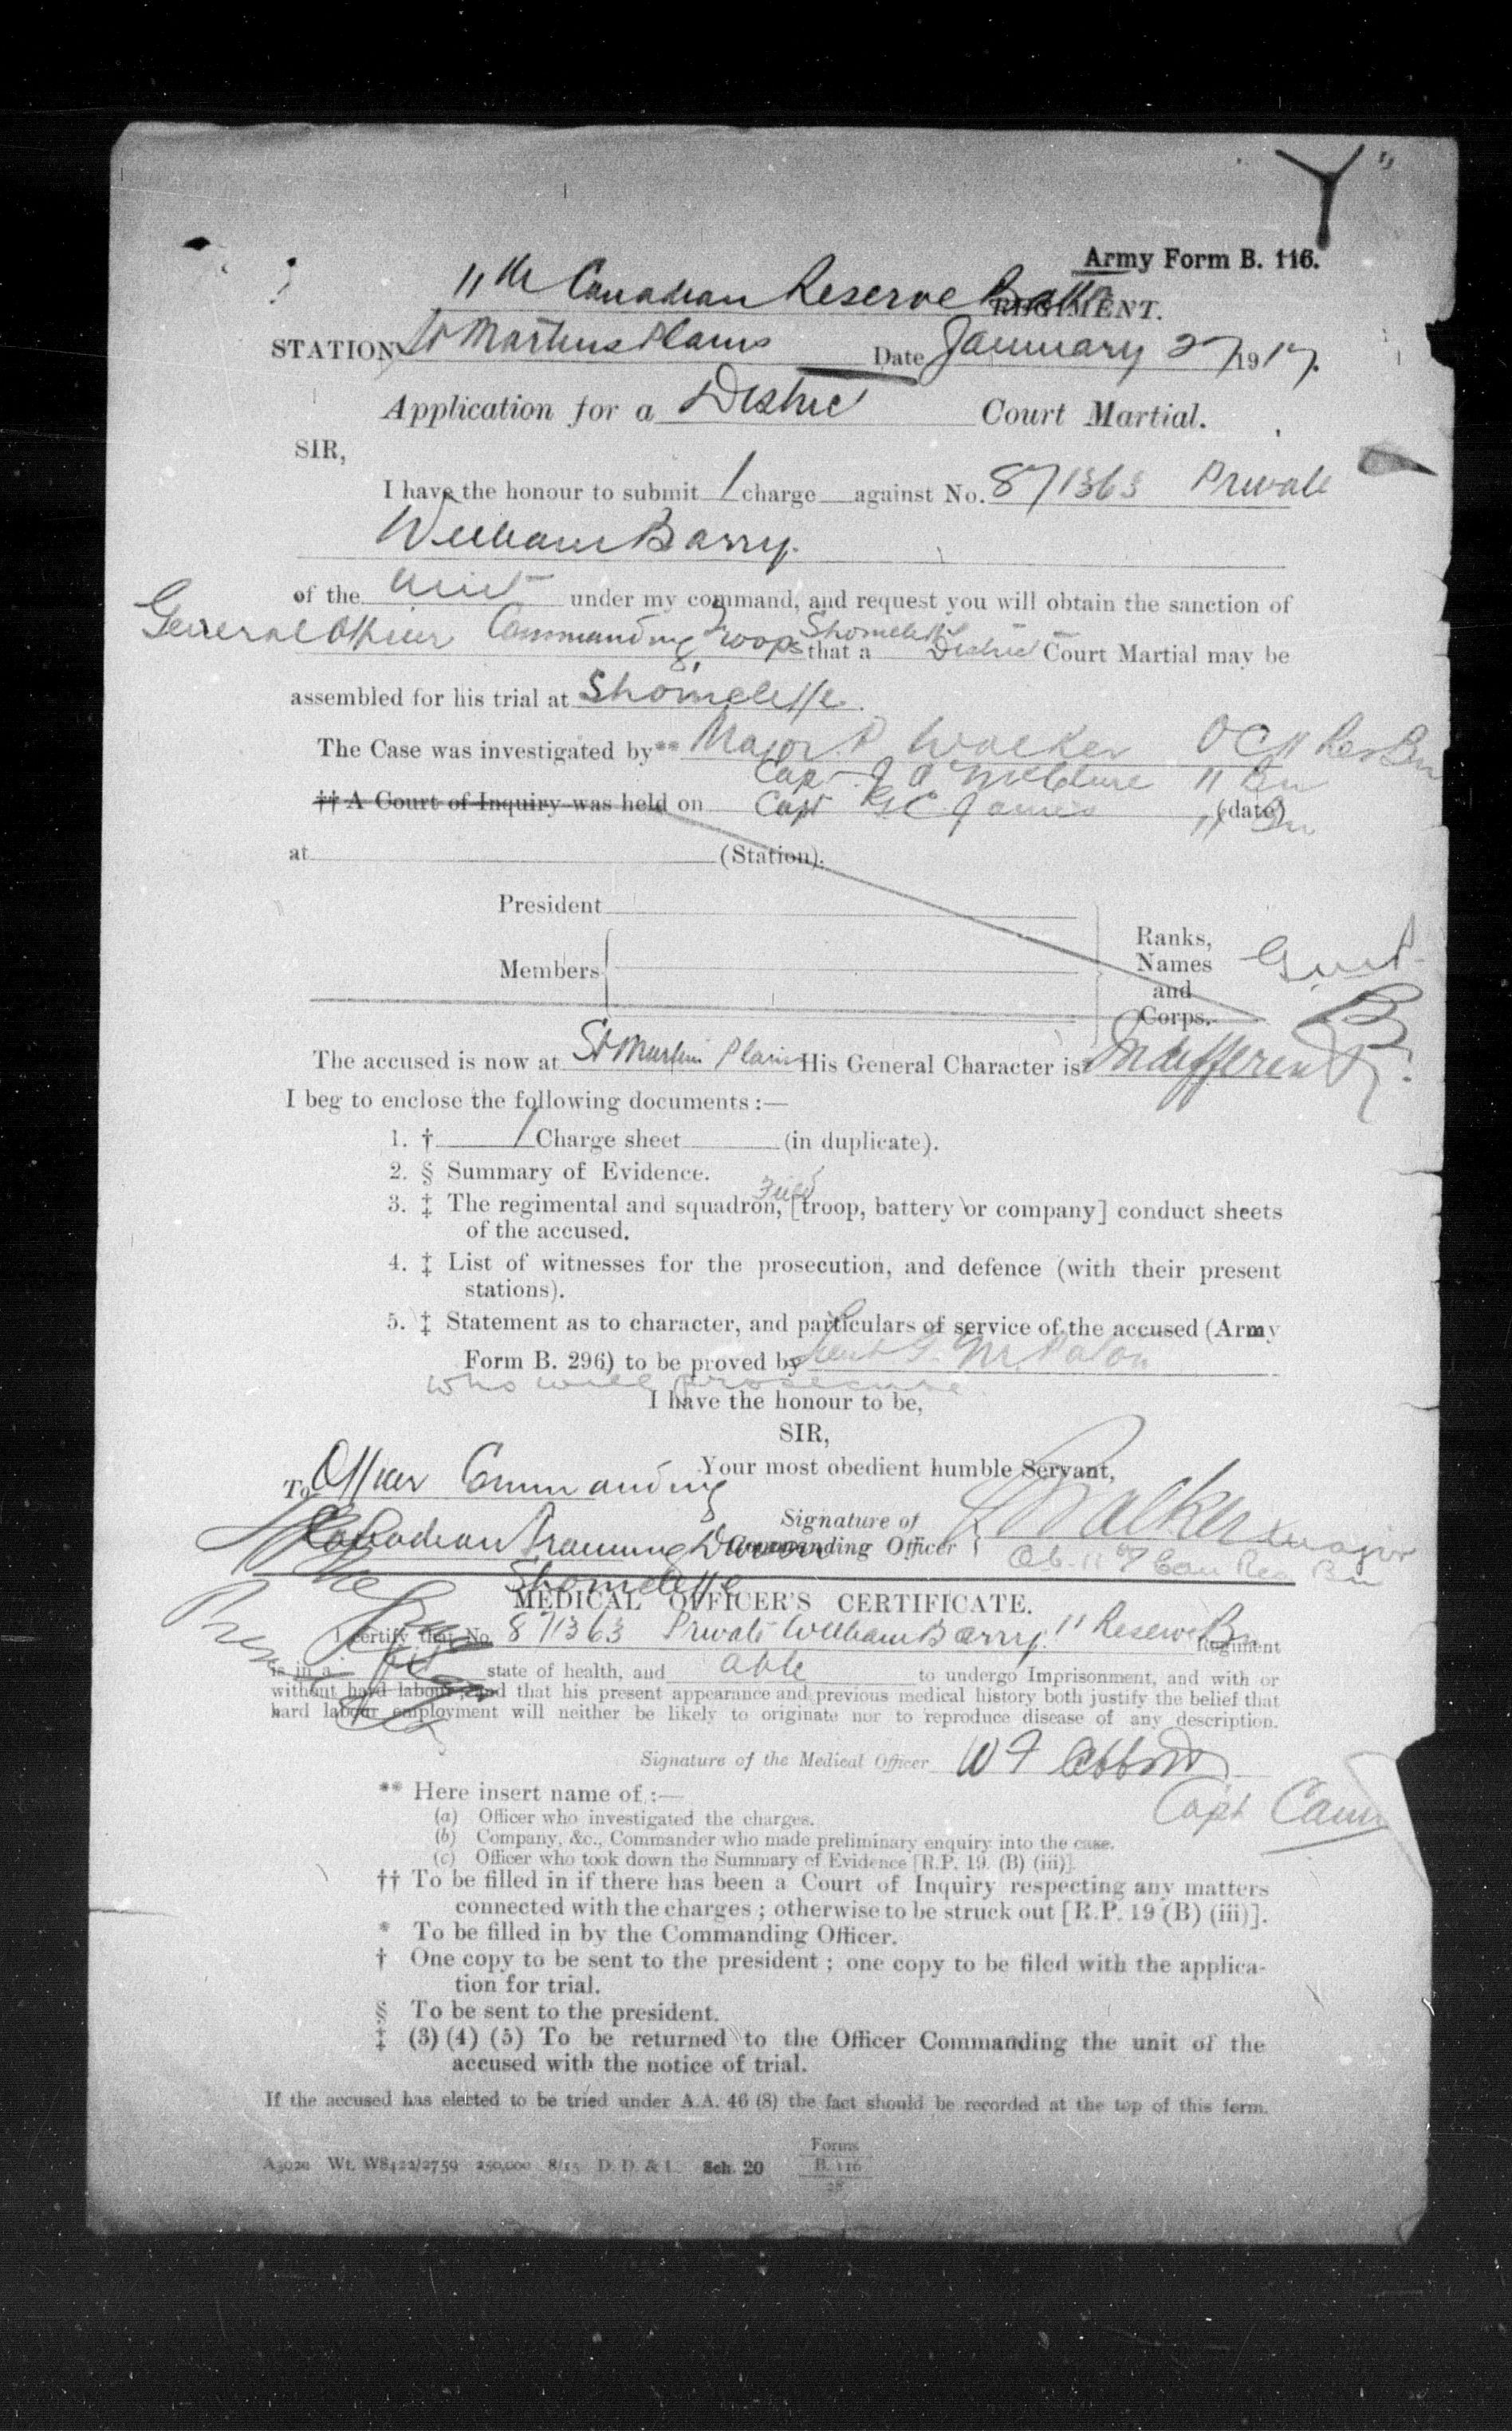 Army Form B. 116.
11th Canadian Reserve Battn REGIMENT.
STATION St Martins Plains Date January 27 1917.
Application for a District Court Martial.
SIR,
I have the honour to submit 1 charge against No. 871363 Private
William Barry.
of the unit under my command, and request you will obtain the sanction of
General Officer Commanding Troops Shorncliffe that a District Court Martial may be
assembled for his trial at Shorncliffe.
The Case was investigated by** Major P Walker OC 11 Res Bn
Capt J A McClure 11 Bn
†† A Court of Inquiry was held on Capt James 11 Bn (date)
at (Station).
President
Members
Ranks,
Names
and
Corps.
The accused is now at St Martins Plains His General Character is* Indifferent
I beg to enclose the following documents :—
1. † 1 Charge sheet (in duplicate).
2. § Summary of Evidence.
Field
3. ‡ The regimental and squadron, [troop, battery or company] conduct sheets
of the accused.
4. ‡ List of witnesses for the prosecution, and defence (with their present
stations).
5. ‡ Statement as to character, and particulars of service of the accused (Army
Form B. 296) to be proved by Lieut
who will prosecute
I have the honour to be,
SIR,
Your most obedient humble Servant,
To Officer Commanding
Canadian Training Division
Shorncliffe
Signature of
Commanding Officer Walker Major
11th Can Res Bn
MEDICAL OFFICER'S CERTIFICATE.
I certify that No. 871363 Private William Barry 11 Reserve Bn Regiment
is in a fit state of health, and able to undergo Imprisonment, and with or
without hard labour, and that his present appearance and previous medical history both justify the belief that
hard labour employment will neither be likely to originate nor to reproduce disease of any description.
Signature of the Medical Officer W F Abbott
Capt
** Here insert name of :—
(a) Officer who investigated the charges.
(b) Company, &c., Commander who made preliminary enquiry into the case.
(c) Officer who took down the Summary of Evidence [R.P. 19. (B) (iii)].
†† To be filled in if there has been a Court of Inquiry respecting any matters
connected with the charges ; otherwise to be struck out [R.P. 19 (B) (iii)].
* To be filled in by the Commanding Officer.
† One copy to be sent to the president ; one copy to be filed with the applica-
tion for trial.
§ To be sent to the president.
‡ (3) (4) (5) To be returned to the Officer Commanding the unit of the
accused with the notice of trial.
If the accused has elected to be tried under A.A. 46 (8) the fact should be recorded at the top of this form.
A3020 Wt. W8422/2759 250,000 8/15 D. D. & L. Sch. 20 Forms
B. 116